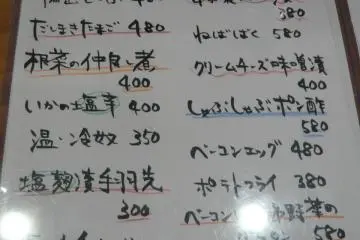 だしまきたまご 480
根菜の仲良し煮
400
いかの塩辛 400
温・冷奴 350
塩麹漬手羽先
300
380
ねばねば 580
クリームチーズ味噌漬
400
しゃぶしゃぶポン酢
580
ベーコンエッグ 480
ポテトフライ 380
ベーコン 野菜の
580